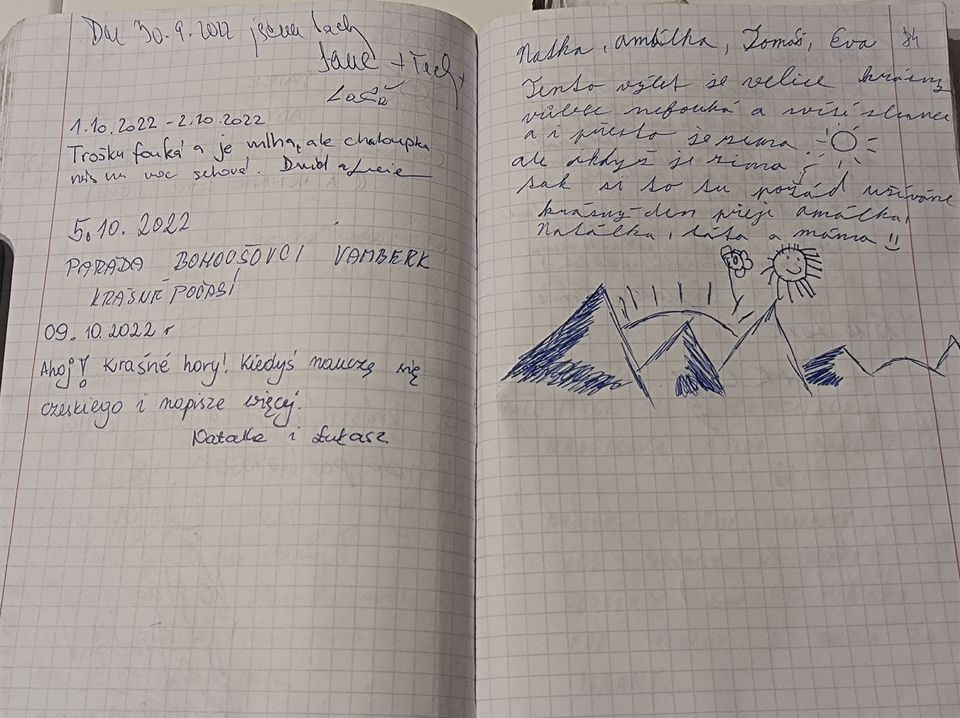 Dne 30.9.2022 jsem
1.10.2022 - 2.10.2022
Trošku fouká a je mlha, ale chaloupka
nás na noc schová!
5.10.2022
PARÁDA BOHOUŠOVCI VAMBERK
KRÁSNÉ POČASÍ
09.10.2022 r
Ahoj! Kraśné hory! Kiedyś nauczę się
czeskiego i napisze więcej.
Natalka i Łukasz
84
Naťka, Amálka, Tomáš, Eva
Tento výlet je velice krásný
vůbec nefouká a svítí slunce
a i přesto je zima.
ale když je zima
tak si to tu pořád užíváme
krásný den přeji Amálka,
Natálka, táta a máma !!